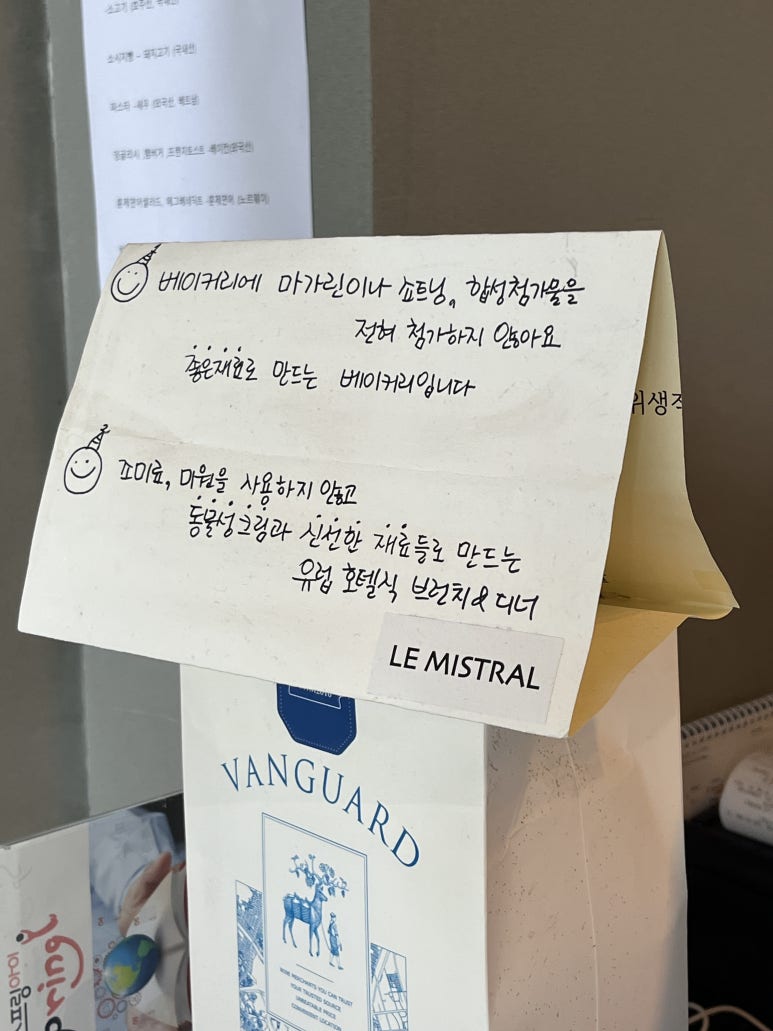 -소고기 (호주산, 국내산)
소시지빵 - 돼지고기 (국내산)
파스타 -새우 (외국산, 베트남)
잉글리시 ,햄버거 ,프렌치토스트 -베이컨(외국산)
훈제연어샐러드, 에그베네딕트 -훈제연어 (노르웨이)
베이커리에 마가린이나 쇼트닝, 합성첨가물을
전혀 첨가하지 않아요
좋은재료로 만드는 베이커리입니다
조미료, 미원을 사용하지 않고
동물성크림과 신선한 재료들로 만드는
유럽 호텔식 브런치 & 디너
LE MISTRAL
위생
VANGUARD
WINE MERCHANTS YOU CAN TRUST
YOUR TRUSTED SOURCE
UNBEATABLE PRICE
CONVENIENT LOCATION
스프링아이